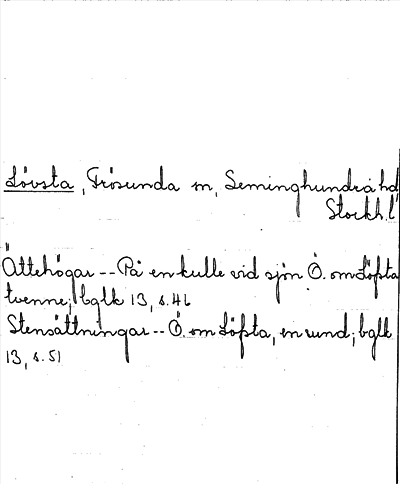 Lövsta, Frösunda sn, Seminghundra hd
Stockh. l
Ättehögar -- På en kulle vid sjön Ö. om Löfsta
tvenne; bglk 13, s. 46
Stensättningar -- Ö. om Löfsta, en rund; bglk
13, s. 51